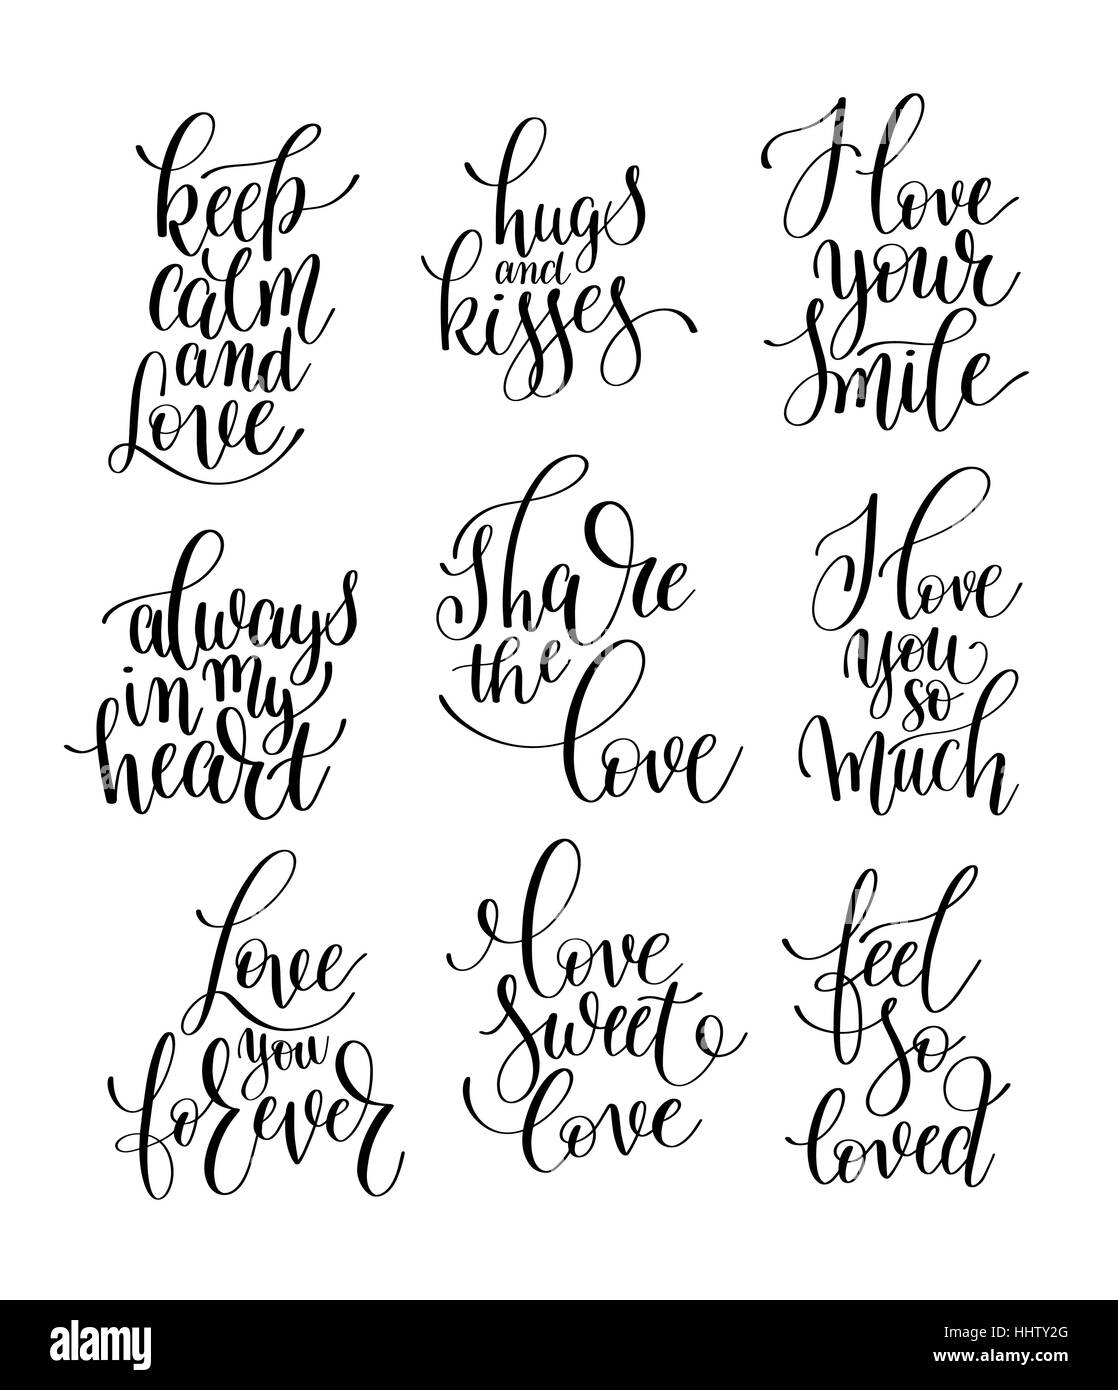 keep
calm
and
Love
hugs
and
kisses
I love
your
Smile
always
in my
heart
Share
the
love
I love
you
so
much
Love
you
forever
love
sweet
love
feel
so
loved
alamy
Image ID: HHTY2G
www.alamy.com